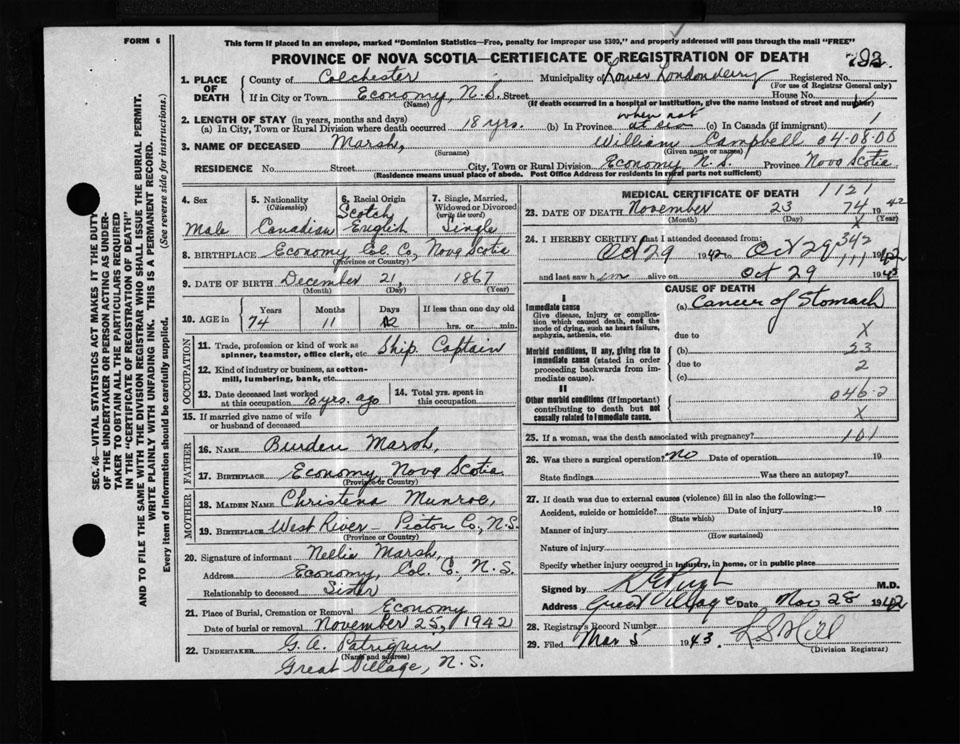 FORM 6
This form if placed in an envelope, marked "Dominion Statistics—Free, penalty for improper use $300," and properly addressed will pass through the mail "FREE"
PROVINCE OF NOVA SCOTIA—CERTIFICATE OF REGISTRATION OF DEATH
1. PLACE OF DEATH
County of Colchester Municipality of Lower Londonderry Registered No.
(For use of Registrar General only)
If in City or Town Economy, N.S. Street House No.
(Name) (If death occurred in a hospital or institution, give the name instead of street and number)
2. LENGTH OF STAY (in years, months and days) when not
(a) In City, Town or Rural Division where death occurred 18 yrs. (b) In Province at sea (c) In Canada (if immigrant) 1
3. NAME OF DECEASED Marsh, William Campbell 04-08-00
(Surname) (Given name or names)
RESIDENCE No. Street City, Town or Rural Division Economy N.S. Province Nova Scotia
(Residence means usual place of abode. Post Office Address for residents in rural parts not sufficient)
4. Sex Male
5. Nationality (Citizenship) Canadian
6. Racial Origin Scotch English
7. Single, Married, Widowed or Divorced (write the word) Single
8. BIRTHPLACE Economy Col. Co, Nova Scotia
(Province or Country)
9. DATE OF BIRTH December 21, 1867
(Month) (Day) (Year)
10. AGE in Years Months Days If less than one day old
74 11 hrs. or min.
OCCUPATION
11. Trade, profession or kind of work as spinner, teamster, office clerk, etc. Ship Captain
12. Kind of industry or business, as cotton-mill, lumbering, bank, etc.
13. Date deceased last worked at this occupation 10 yrs. ago
14. Total yrs. spent in this occupation
15. If married give name of wife or husband of deceased
FATHER
16. NAME Burden Marsh,
17. BIRTHPLACE Economy, Nova Scotia
(Province or Country)
MOTHER
18. MAIDEN NAME Christina Munroe,
19. BIRTHPLACE West River - Pictou Co., N.S.
(Province or Country)
20. Signature of informant Nellie Marsh,
Address Economy, Col. C., N.S.
Relationship to deceased Sister
21. Place of Burial, Cremation or Removal Economy
Date of burial or removal November 25, 1942
22. UNDERTAKER G. A. Patriquin
(Name and address)
Great Village, N.S.
MEDICAL CERTIFICATE OF DEATH 1121
23. DATE OF DEATH November 23 74 1942
(Month) (Day) (Year)
342
24. I HEREBY CERTIFY that I attended deceased from:
Oct 29 1942 to Oct 29 1942
111
and last saw him alive on Oct 29 1942
CAUSE OF DEATH
I
Immediate cause
Give disease, injury or complication which caused death, not the mode of dying, such as heart failure, asphyxia, asthenia, etc.
(a) Cancer of Stomach
due to X
Morbid conditions, if any, giving rise to immediate cause (stated in order proceeding backwards from immediate cause).
(b) 53
due to 2
(c)
II
Other morbid conditions (if important) contributing to death but not causally related to immediate cause.
046.2
X
25. If a woman, was the death associated with pregnancy? 101
26. Was there a surgical operation? No Date of operation 19
State findings Was there an autopsy?
27. If death was due to external causes (violence) fill in also the following:—
Accident, suicide or homicide? Date of injury 19
(State which)
Manner of injury
(How sustained)
Nature of injury
Specify whether injury occurred in industry, in home, or in public place
Signed by M.D.
Address Great Village Date Nov 28 1942
28. Registrar's Record Number
29. Filed Mar 5 1943. K S Hill
(Division Registrar)
SEC. 46—VITAL STATISTICS ACT MAKES IT THE DUTY
OF THE UNDERTAKER OR PERSON ACTING AS UNDER-
TAKER TO OBTAIN ALL THE PARTICULARS REQUIRED
IN THE "CERTIFICATE OF REGISTRATION OF DEATH"
AND TO FILE THE SAME WITH THE DIVISION REGISTRAR WHO SHALL ISSUE THE BURIAL PERMIT.
WRITE PLAINLY WITH UNFADING INK. THIS IS A PERMANENT RECORD.
Every item of information should be carefully supplied. (See reverse side for instructions.)